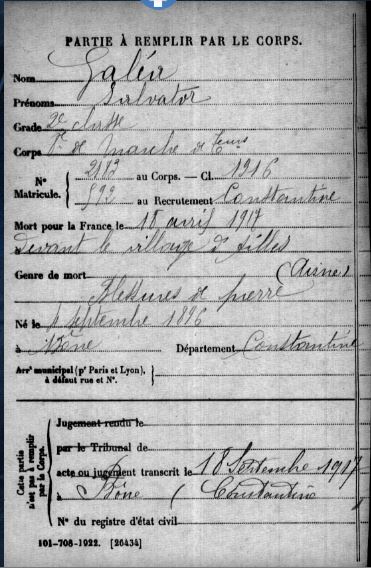 PARTIE À REMPLIR PAR LE CORPS.
Nom Galéa
Prénoms Salvator
Grade 2e classe
Corps de Marche de
N° 2182 au Corps. — Cl. 1916
Matricule. 592 au Recrutement Constantine
Mort pour la France le 18 avril 1917
devant le village d'Ailles
(Aisne)
Genre de mort
Blessures de guerre
Né le septembre 1896
à Bône Département Constantine
Arrt municipal (pr Paris et Lyon),
à défaut rue et N°.
Cette partie
n'est pas à remplir
par le Corps.
Jugement rendu le
par le Tribunal de
acte ou jugement transcrit le 18 Septembre 1917
à Bône (Constantine
N° du registre d'état civil
101-708-1922. [26434]